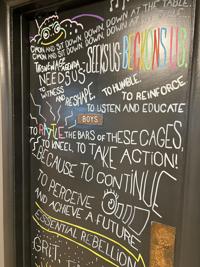 DOWN DOWN AT THE TABLE
C'MON AND SIT DOWN, DOWN DOWN DOWN
C'MON AND SIT DOWN DOWN DOWN DOWN
SEEKS US BECKONS US
NEEDS US
TO WITNESS
AND RESHAPE. TO HUMBLE. TO REINFORCE
TO LISTEN AND EDUCATE
BOYS
TO RATTLE THE BARS OF THESE CAGES,
TO KNEEL, TO TAKE ACTION!
BECAUSE TO CONTINUE
TO PERCEIVE
AND ACHIEVE A FUTURE
ESSENTIAL REBELLION
GRIT